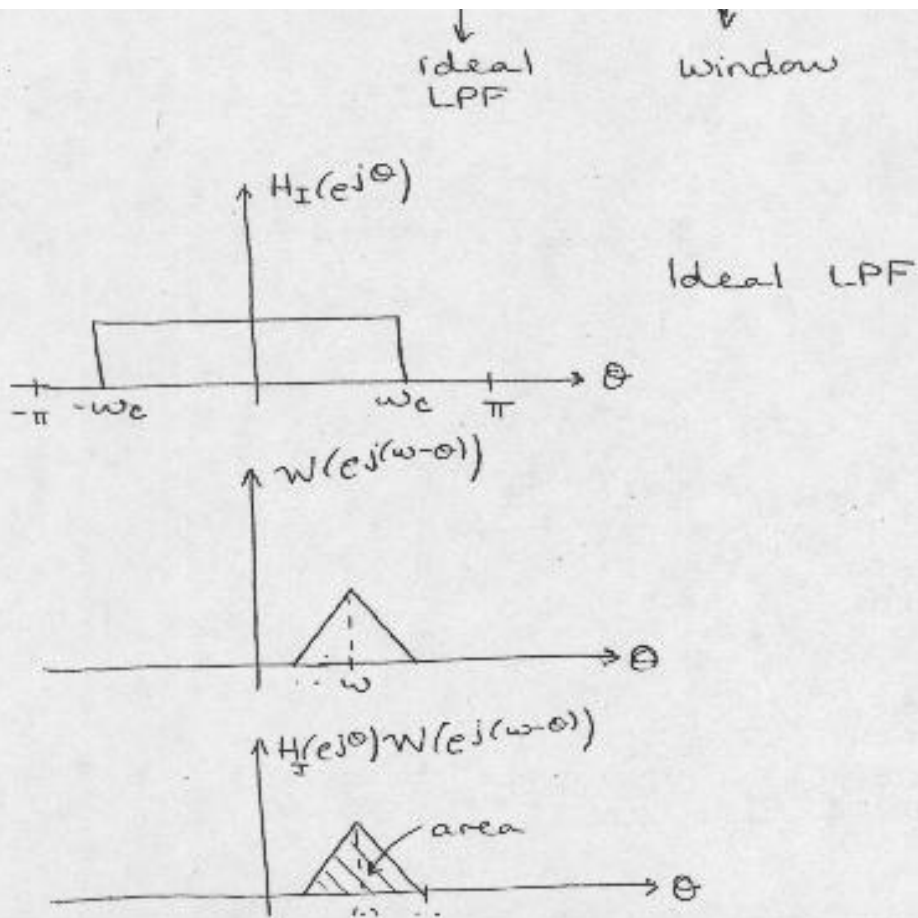 ideal window
LPF
H_I(e^{jθ})
Ideal LPF
-π -ωc ωc π θ
W(e^{j(ω-θ)})
θ
ω
H_I(e^{jθ})W(e^{j(ω-θ)})
area
θ